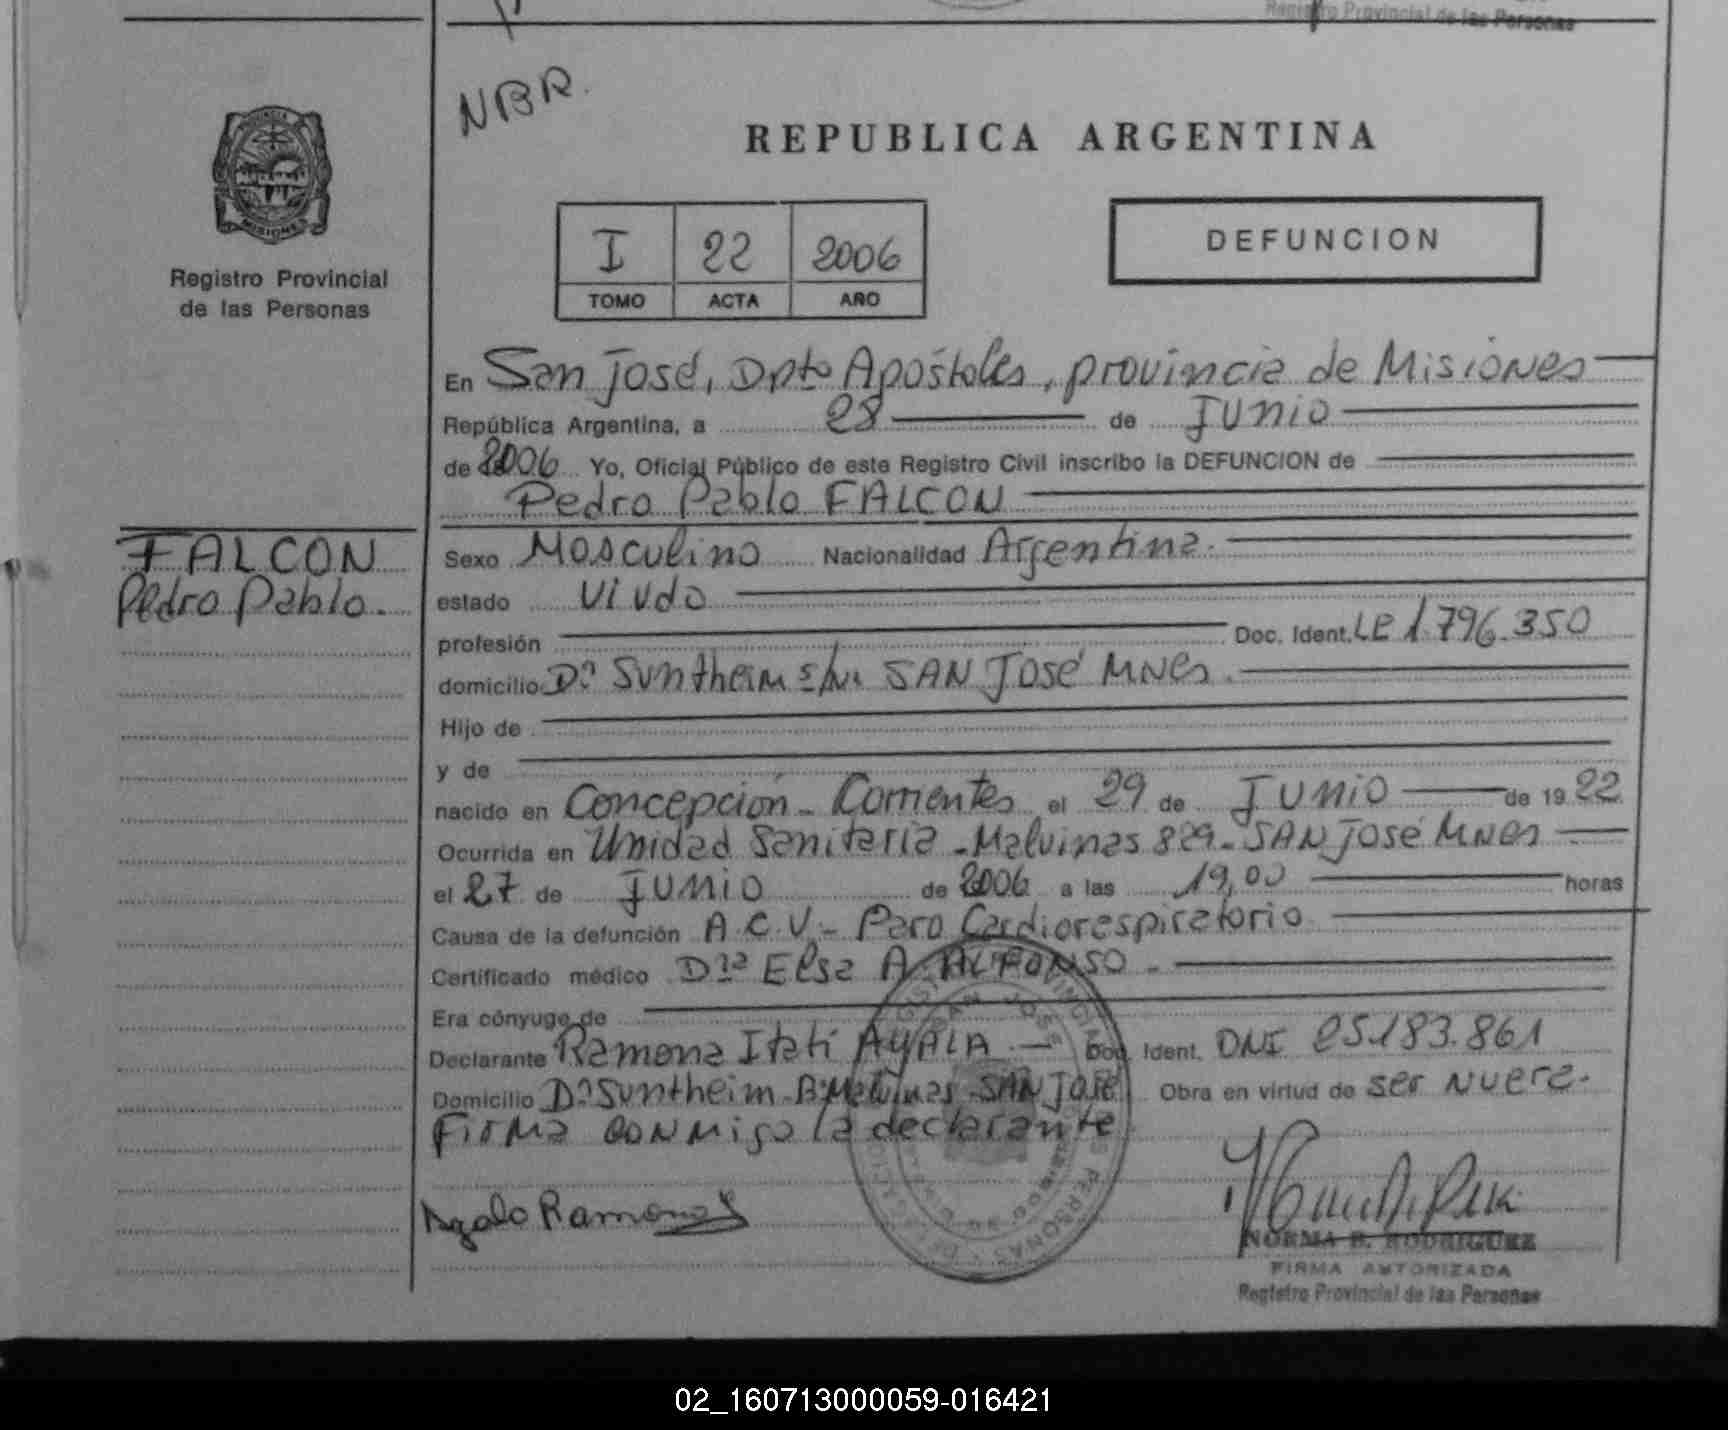 Registro Provincial de las Personas
NBR.
REPUBLICA ARGENTINA
PROVINCIA
MISIONES
Registro Provincial
de las Personas
I 22 2006
TOMO ACTA AÑO
DEFUNCION
En San José, Dpto Apóstoles, provincia de Misiones
República Argentina, a 28 de Junio
de 2006 Yo, Oficial Público de este Registro Civil inscribo la DEFUNCION de
Pedro Pablo FALCON
FALCON
Pedro Pablo.
Sexo Masculino Nacionalidad Argentina.
estado Viudo
profesión Doc. Ident. LE 1.796.350
domicilio Dº Suntheim s/n. SAN José MNes.
Hijo de
y de
nacido en Concepción - Corrientes el 29 de Junio de 1922
Ocurrida en Unidad Sanitaria - Malvinas 829 - SAN José MNes
el 27 de Junio de 2006 a las 19,00 horas
Causa de la defunción A.C.V. - Paro Cardiorespiratorio
Certificado médico Dra Elsa A. ALFONSO -
Era cónyuge de
Declarante Ramona Itatí AYALA - Doc. Ident. DNI 25.183.861
Domicilio Dº Suntheim - Bº Malvinas - SAN José Obra en virtud de ser Nuera.
Firma conmigo la declarante
Ayala Ramona I
NORMA B. RODRIGUEZ
FIRMA AUTORIZADA
Registro Provincial de las Personas
02_160713000059-016421